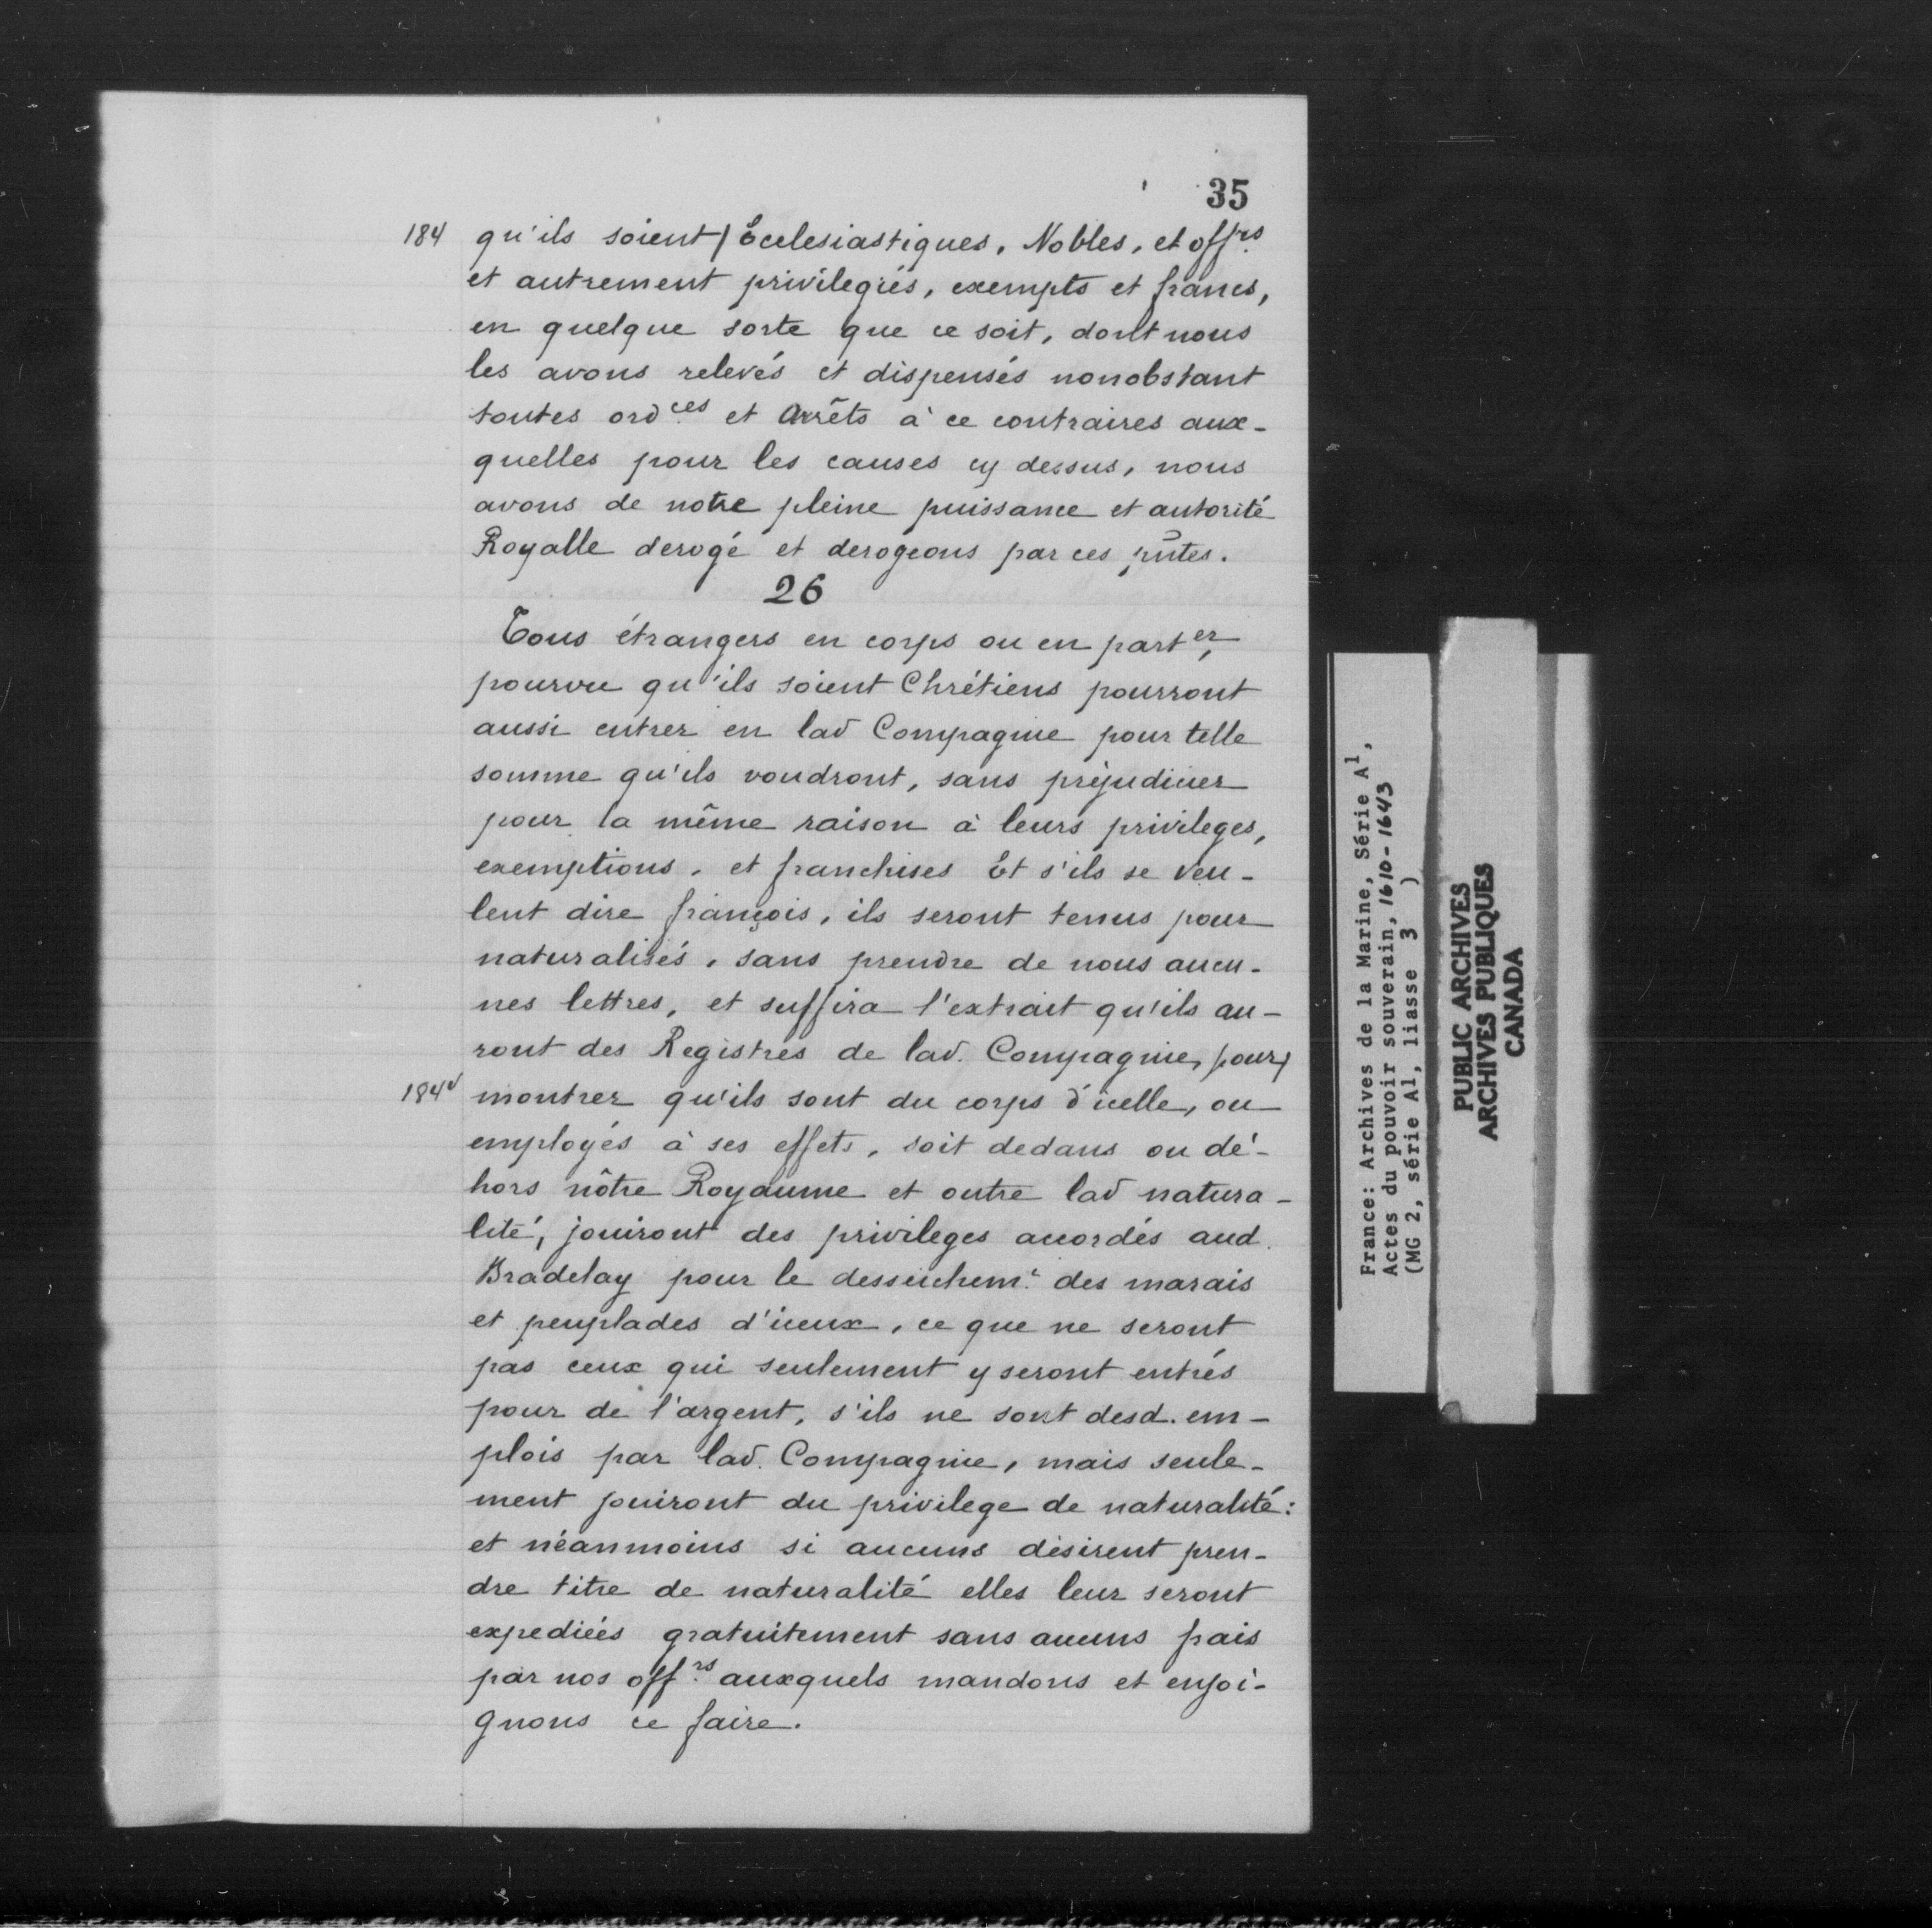 35
184 qu'ils soient / Ecclesiastiques, Nobles, et offrs
et autrement privilegiés, exempts et francs,
en quelque sorte que ce soit, dont nous
les avons relevés et dispensés nonobstant
toutes ordces et Arrêts à ce contraires aux-
quelles pour les causes cy dessus, nous
avons de notre pleine puissance et autorité
Royalle derogé et derogeons par ces pñtes.
26
Tous étrangers en corps ou en parter,
pourvu qu'ils soient Chrétiens pourront
aussi entrer en lad Compagnie pour telle
somme qu'ils voudront, sans préjudicier
pour la même raison à leurs privileges,
exemptions, et franchises Et s'ils se veu-
lent dire françois, ils seront tenus pour
naturalisés, sans prendre de nous aucu-
nes lettres, et suffira l'extrait qu'ils au-
ront des Registres de lad. Compagnie, pour /
184v montrer qu'ils sont du corps d'icelle, ou
employés à ses effets, soit dedans ou dé-
hors nôtre Royaume et outre lad natura-
lité, jouiront des privileges accordés aud.
Bradelay pour le dessechemt des marais
et peuplades d'iceux, ce que ne seront
pas ceux qui seulement y seront entrés
pour de l'argent, s'ils ne sont desd. em-
plois par lad. Compagnie, mais seule-
ment jouiront du privilege de naturalité:
et néanmoins si aucuns désirent pren-
dre titre de naturalité elles leur seront
expediées gratuitement sans aucuns frais
par nos offrs auxquels mandons et enjoi-
gnons ce faire.
France: Archives de la Marine, Série A1,
Actes du pouvoir souverain, 1610-1643
(MG 2, série A1, liasse 3 )
PUBLIC ARCHIVES
ARCHIVES PUBLIQUES
CANADA